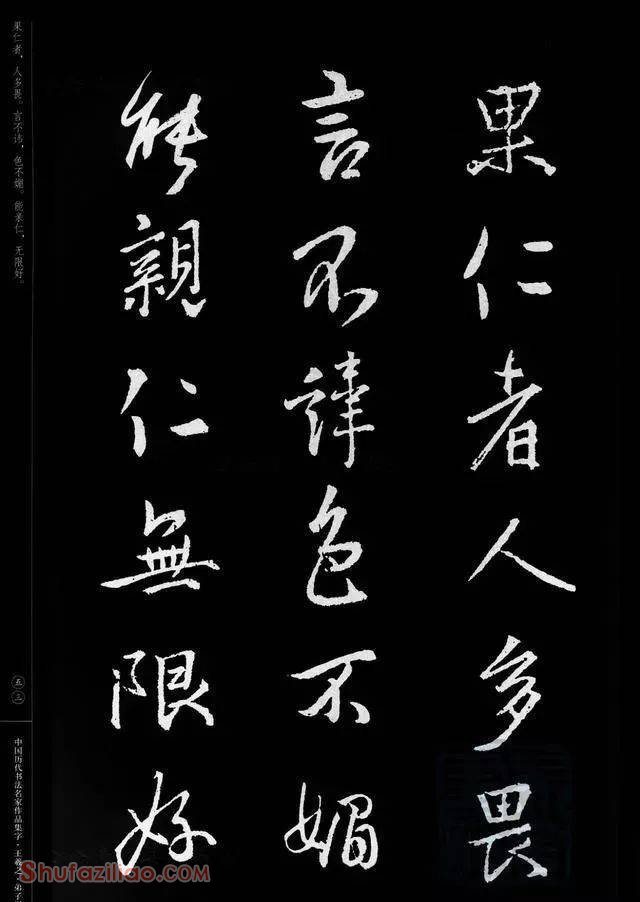 果仁者人多畏
言不諱色不媚
能親仁無限好
果仁者,人多畏。言不讳,色不媚。能亲仁,无限好。
五三
中国历代书法名家作品集字·王羲之 弟子
Shufaziliao.com